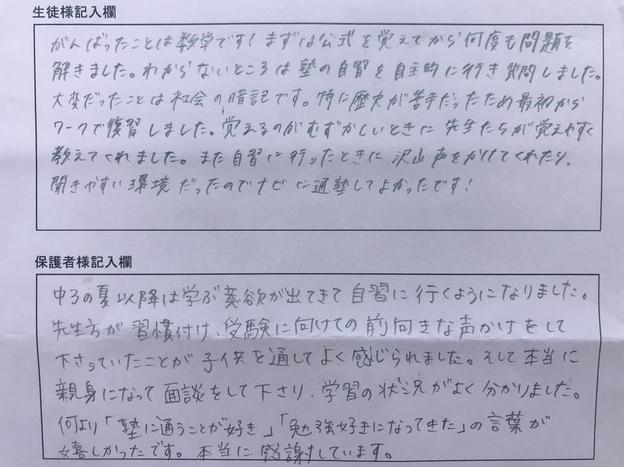 生徒様記入欄
がんばったことは数学です!まずは公式を覚えてから何度も問題を
解きました。わからないところは塾の自習を自主的に行き質問しました。
大変だったことは社会の暗記です。特に歴史が苦手だったため最初から
ワークで復習しました。覚えるのがむずかしいときに先生たちが覚えやすく
教えてくれました。また自習に行ったときに沢山声をかけてくれたり、
聞きやすい環境だったのでナビに通塾してよかったです!
保護者様記入欄
中3の夏以降は学ぶ意欲が出てきて自習に行くようになりました。
先生方が習慣付け、受験に向けての前向きな声かけをして
下さっていたことが子供を通してよく感じられました。そして本当に
親身になって面談をして下さり、学習の状況がよく分かりました。
何より「塾に通うことが好き」「勉強好きになってきた」の言葉が
嬉しかったです。本当に感謝しています。